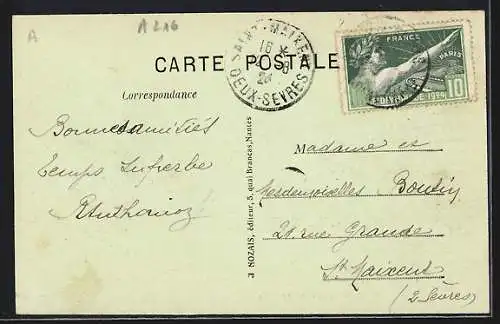 A
A 216
CARTE POSTALE
SAINT-MAIXENT
16 *
24
DEUX-SEVRES
FRANCE
PARIS
1924
10
Correspondance
Bonnes amitiés
temps superbe
J NOZAIS, éditeur, 5, quai Brancas, Nantes
Madame et
Mesdemoiselles Boutin
21 rue Grande
St Maixent
(2 Sèvres)